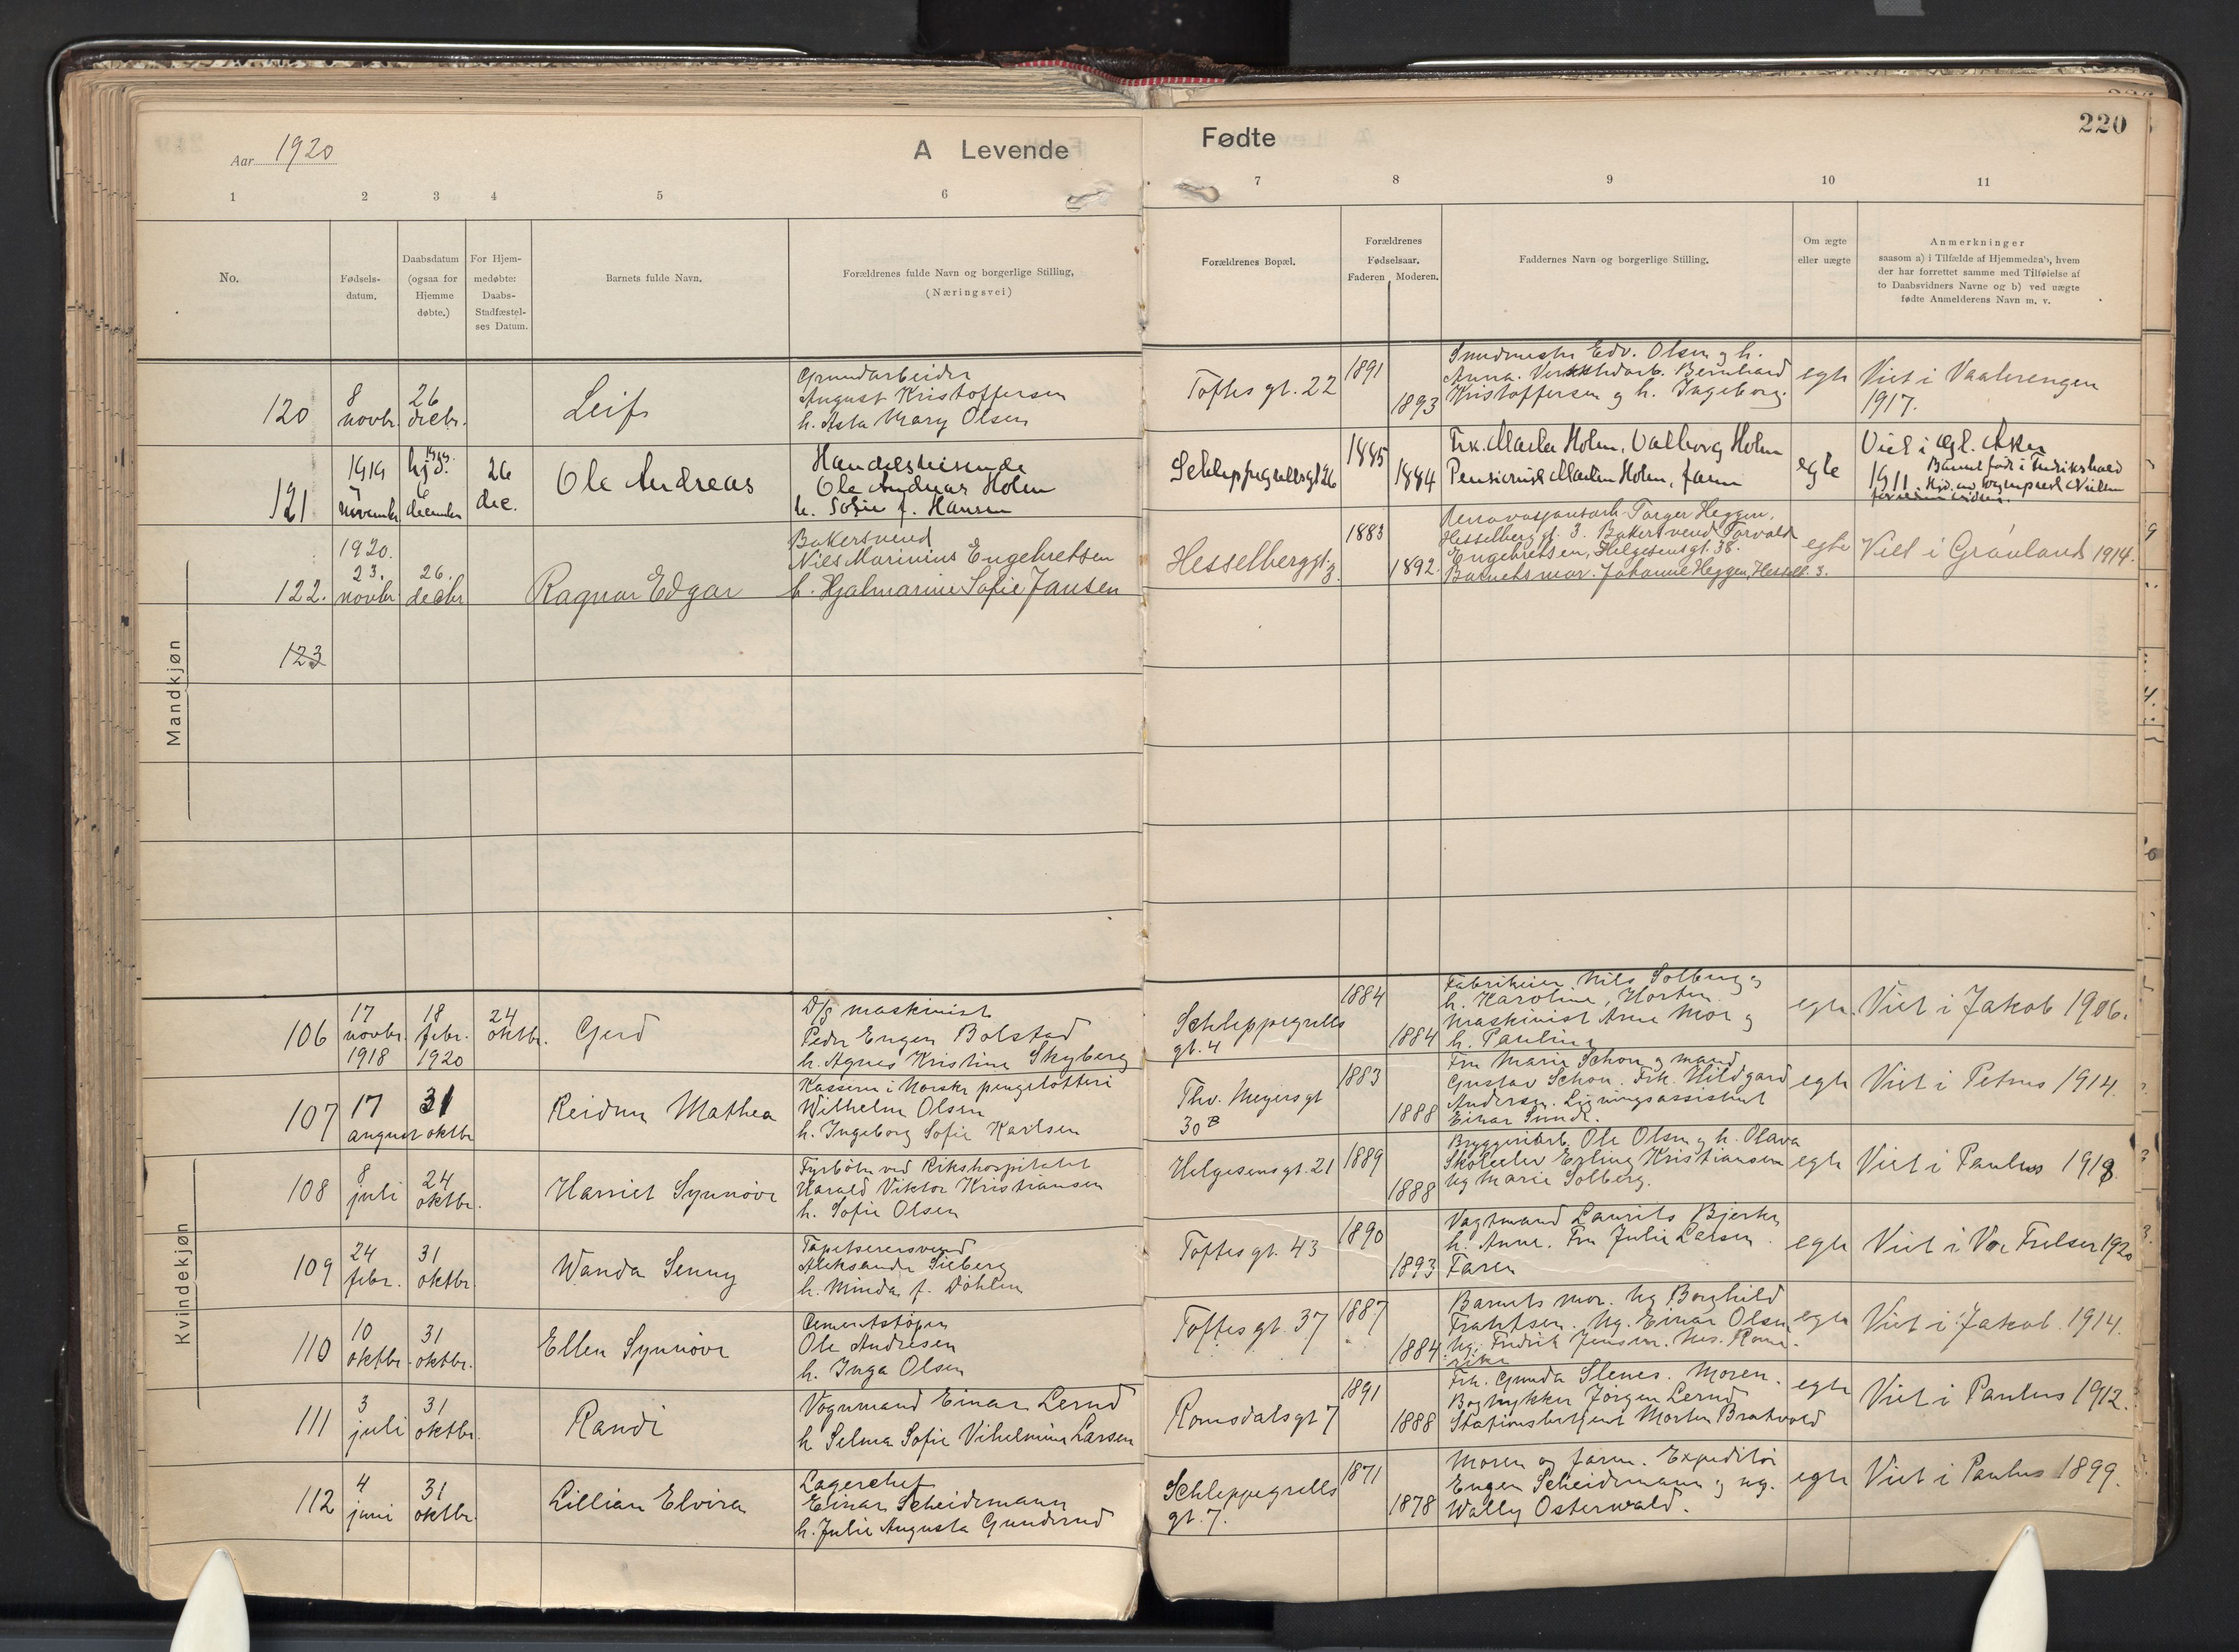 Aar 1920
A Levende
Fødte
220
1 2 3 4 5 6 7 8 9 10 11
No.
Fødsels-
datum.
Daabsdatum
(ogsaa for
Hjemme
døbte.)
For Hjem-
medøbte:
Daabs-
Stadfæstel-
ses Datum.
Barnets fulde Navn.
Forældrenes fulde Navn og borgerlige Stilling,
(Næringsvei)
Forældrenes Bopæl.
Forældrenes
Fødselsaar.
Faderen Moderen.
Faddernes Navn og borgerlige Stilling.
Om ægte
eller uægte
Anmerkninger
saasom a) i Tilfælde af Hjemmedaab, hvem
der har forrettet samme med Tilføielse af
to Daabsvidners Navne og b) ved uægte
fødte Anmelderens Navn m. v.
Mandkjøn
120
8
novbr.
26
decbr.
Leif
Grundarbeider
August Kristoffersen
h. Asta Mary Olsen
Toftes gt. 22
1891
1893
Smedmester Edv. Olsen og h.
Anna. Verkstedarb. Bernhard
Kristoffersen og h. Ingeborg.
egte
Viet i Vaalerengen
1917.
121
1919
7
november
hjd.
6
december
26
dec.
Ole Andreas
Handelsreisende
Ole Andreas Holm
h. Sofie f. Hansen
Schleppegrellsgt 26
1885
1884
Frk. Marta Holm, Valborg Holm
Pensionist Martin Holm, faren
egte
Viet i Gl. Aker
1911. Barnet født i Fredrikshald
122.
1920.
23.
novbr
26.
decbr
Ragnar Edgar
Bakersvend
Nils Marinius Engebretsen
h. Hjalmarine Sofie Jansen
Hesselberggt. 3.
1883
1892.
Renovasjonsarb. Torger Heggen,
Hesselberg gt. 3. Bakersvend Torvald
Engebretsen, Helgesensgt. 38.
Barnets mor. Johanne Heggen, Hesselb. 3.
egte
Viet i Grønland 1914.
123
Kvindekjøn
106
17
novbr.
1918
18
febr.
1920
24
oktbr.
Gerd
D/s maskinist
Peder Eugen Bolstad
h. Agnes Kristine Skyberg
Schleppegrells
gt. 4
1884
1884
Fabrikeier Nils Solberg og
h. Karoline, Horten
Maskinist Arne Mor og
h. Pauline
egte.
Viet i Jakob 1906.
107
17
august
31
oktbr
Reidun Mathea
Kasserer i Norske pengelotteri
Wilhelm Olsen
h. Ingeborg Sofie Karlsen
Thv. Meyersgt
30 B
1883
1888
Fru Marie Schou og mand
Gustav Schou. Frk. Hildgard
Andersen. Ligningsassistent
Einar Sunde.
egte
Viet i Petrus 1914.
108
8
juli
24
oktbr.
Harriet Synnöve
Fyrböter ved Rikshospitalet
Harald Viktor Kristiansen
h. Sofie Olsen
Helgesensgt. 21
1889
1888
Bryggeriarb. Ole Olsen og h. Olava
Skoleelev Erling Kristiansen
Ug Marie Solberg.
egte
Viet i Paulus 1918.
109
24
febr.
31
oktbr.
Wanda Jenny
Tapetserersvend
Aleksander Sieberg
h. Minda f. Döhlen
Toftes gt. 43
1890
1893
Vagtmand Laurits Bjerke
h. Anne. Fru Julie Larsen.
Faren
egte
Viet i Vor Frelser 1920
110
10
oktbr.
31
oktbr.
Ellen Synnöve
Cementstöper
Ole Andresen
h. Inga Olsen
Toftes gt. 37
1887
1884
Barnets mor. Ug Borghild
Frantsen. Ug. Einar Olsen
Ug. Fredrik Jensen. Nes. Rome-
rike
egte
Viet i Jakob. 1914.
111
3
juli
31
oktbr.
Randi
Vognmand Einar Lerud
h Selma Sofie Vilhelmine Larsen
Romsdalsgt 7
1891
1888
Frk. Gunda Stenes. Moren.
Bogtrykker Jörgen Lerud
Stationsbetjent Morten Bratvold
egte
Viet i Paulus 1912.
112
4
juni
31
oktbr.
Lillian Elvira
Lagerchef
Einar Scheidemann
h. Julie Augusta Gunderud
Schleppegrells
gt. 7.
1871
1878
Moren og faren. Expeditör
Eugen Scheidemann og ug.
Wally Osterwald.
egte
Viet i Paulus 1899.